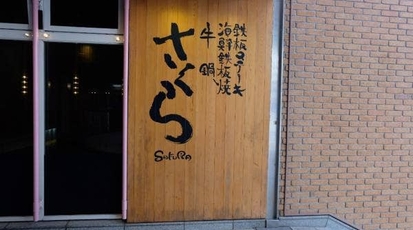 鉄板ステーキ
海鮮鉄板焼
牛鍋
さくら
SakuRa